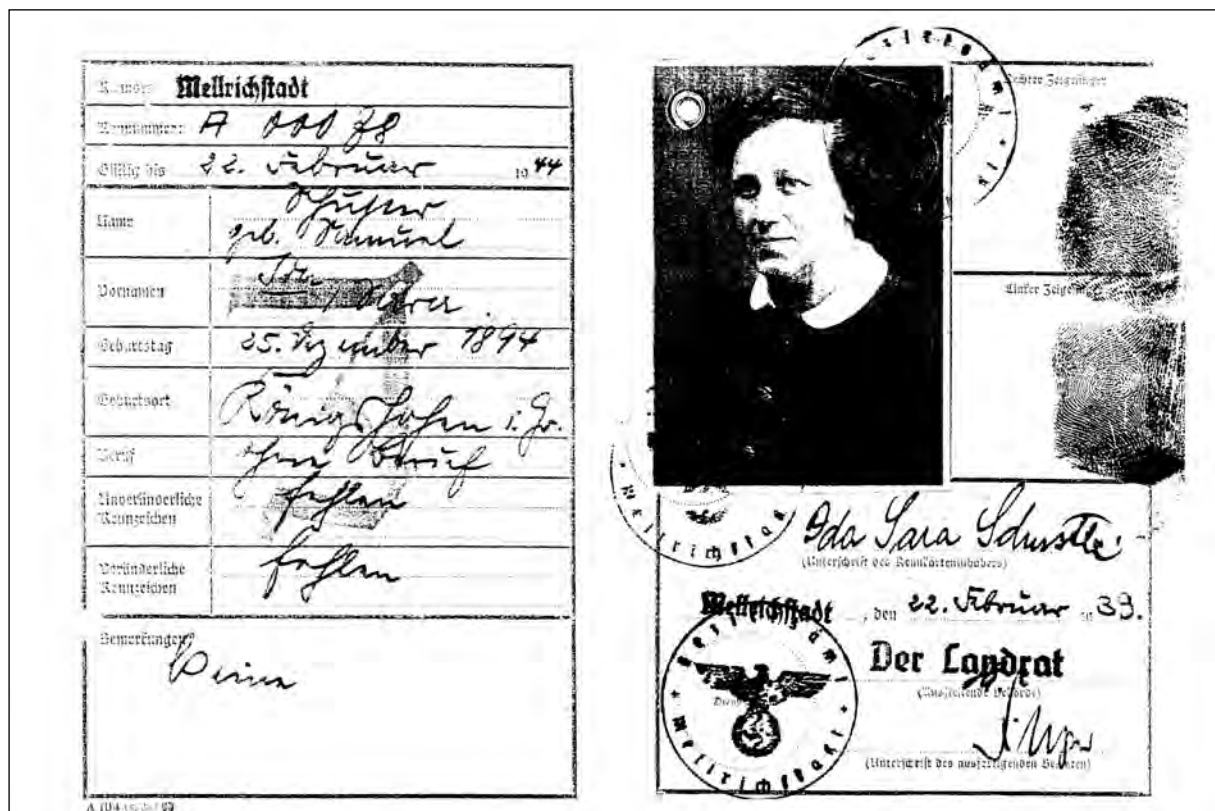 Mellrichstadt
A 00078
Gültig bis 22. Februar 1944
Name
Schuster
geb. Samuel
Vornamen
Ida Sara
Geburtstag 25. Dezember 1894
Geburtsort Königshofen i. Gr.
Beruf ohne Beruf
Unveränderliche
Kennzeichen
fehlen
Veränderliche
Kennzeichen
fehlen
Bemerkungen:
Keine
Rechter Zeigefinger
Linker Zeigefinger
Ida Sara Schuster
(Unterschrift des Kennkarteninhabers)
Mellrichstadt, den 22. Februar 1939.
Bezirksamt Mellrichstadt
Der Landrat
(Ausstellende Behörde)
(Unterschrift des ausfertigenden Beamten)